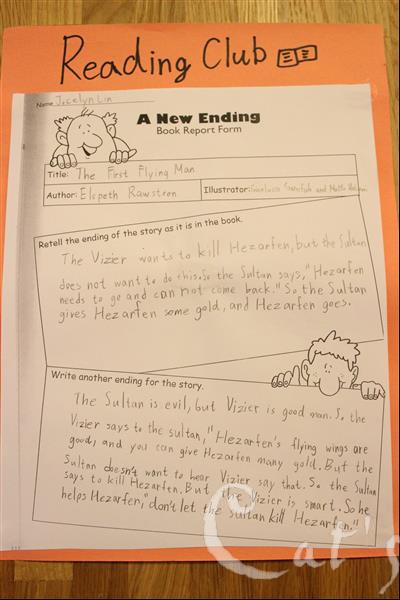 Reading Club
Name Jocelyn Lin
A New Ending
Book Report Form
Title: The First Flying Man
Author: Elspeth Rawstron
Illustrator: and
Retell the ending of the story as it is in the book.
The Vizier wants to kill Hezarfen, but the Sultan
does not want to do this. So the Sultan says, "Hezarfen
needs to go and can not come back." So the Sultan
gives Hezarfen some gold, and Hezarfen goes.
Write another ending for the story.
The Sultan is evil, but Vizier is good man. So the
Vizier says to the sultan, "Hezarfen's flying wings are
good, and you can give Hezarfen many gold. But the
Sultan doesn't want to hear Vizier say that. So the Sultan
says to kill Hezarfen. But the Vizier is smart. So he
helps Hezarfen, "don't let the Sultan kill Hezarfen."
Cat's